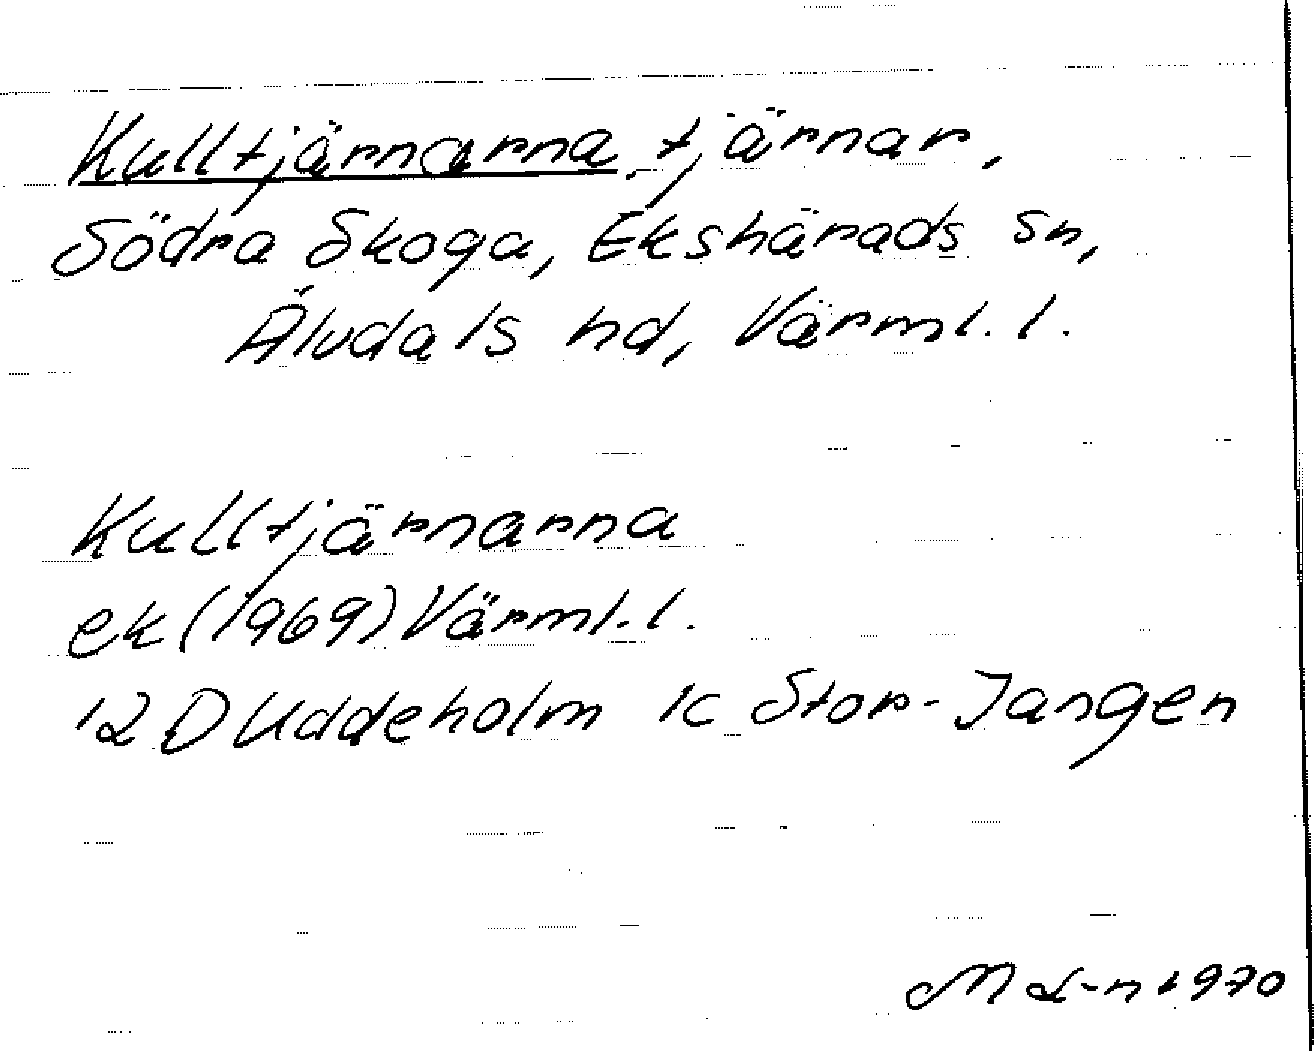 Kulltjärnarna, tjärnar,
Södra Skoga, Ekshärads sn,
Älvdals hd, Värml. l.
Kulltjärnarna
ek (1969) Värml. l.
12 D Uddeholm 1c Stor-Jangen
M L-n 1970